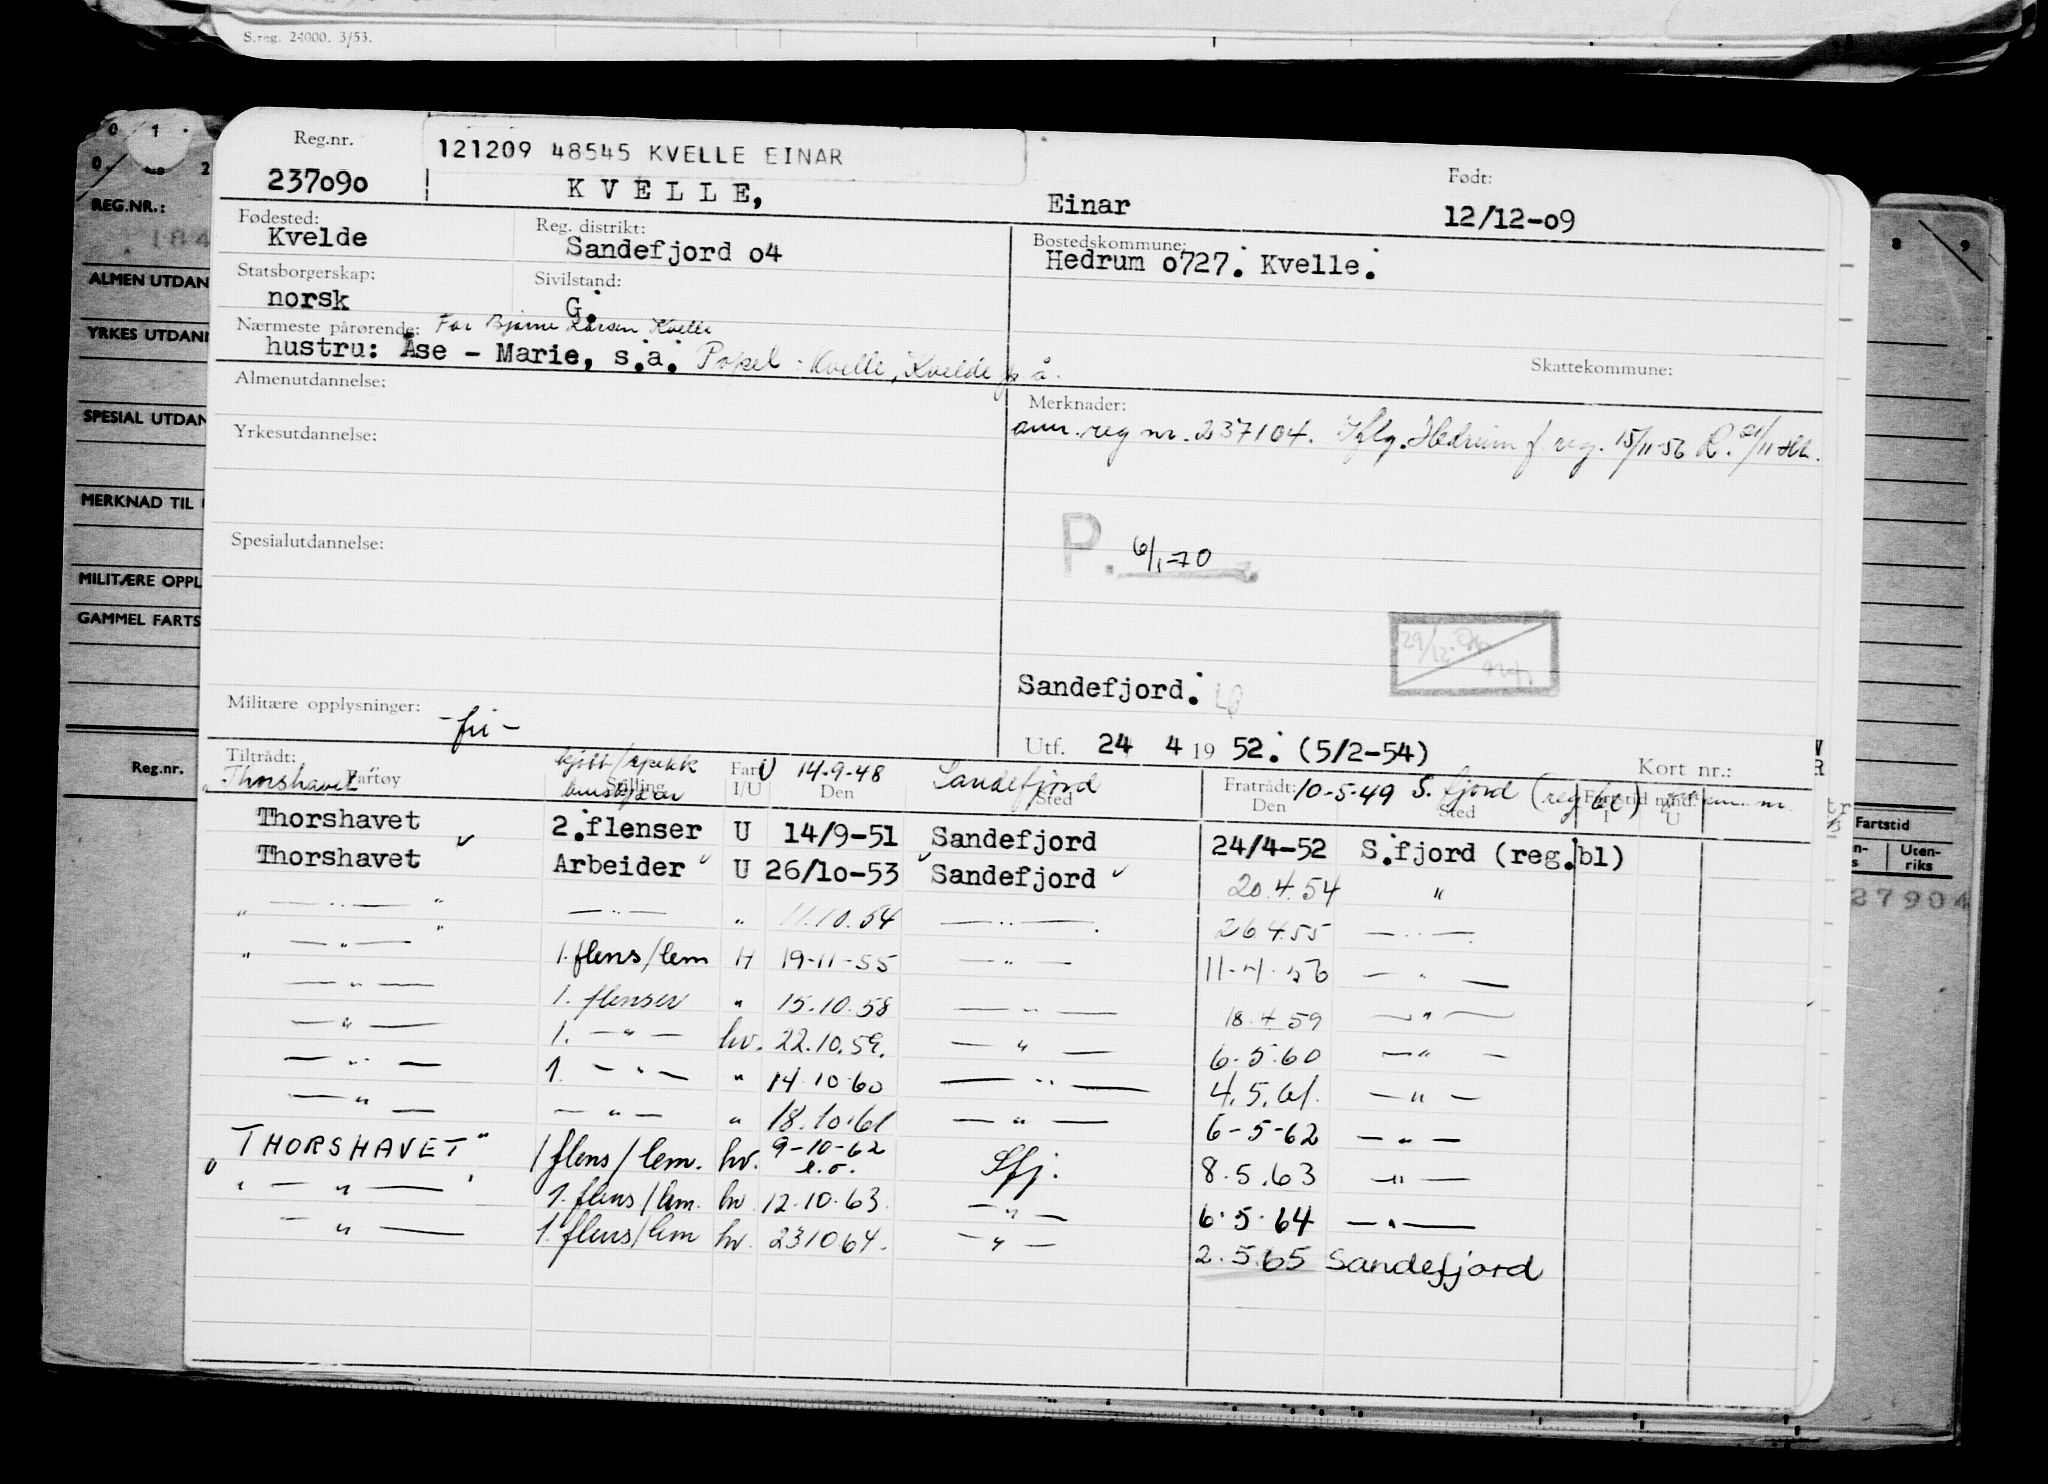 S.reg. 24000. 3/53.
0 1
0 2
REG.NR.:
184
ALMEN UTDAN
YRKES UTDAN
SPESIAL UTDAN
MERKNAD TIL
MILITÆRE OPPL
GAMMEL FARTS
Reg.nr.
8 9
Reg.nr. 121209 48545 KVELLE EINAR
237090 KVELLE, Einar
Født:
12/12-09
Fødested: Kvelde
Reg. distrikt: Sandefjord 04
Bostedskommune: Hedrum 0727. Kvelle.
Statsborgerskap: norsk
Sivilstand: G.
Nærmeste pårørende: Far Bjarne Larsen Kvelle
hustru: Åse - Marie, s.a. Kvelle, Kvelde
Skattekommune:
Almenutdannelse:
Merknader:
ann. reg nr. 237104. Iflg. Hedrum f. reg. 15/11-56 R. 21/11
Yrkesutdannelse:
P. 6/1-70
Spesialutdannelse:
29/12
Sandefjord.
Militære opplysninger: -fri-
Utf. 24 4 19 52. (5/2-54)
Kort nr.:
Tiltrådt: Fartøy Stilling Fart I/U Den Sted Fratrådt: Den Sted Fartstid mnd. I U
Thorshavet kjøtt/spekk U 14-9-48 Sandefjord 10-5-49 S.fjord (reg bl)
Thorshavet 2.flenser U 14/9-51 Sandefjord 24/4-52 S.fjord (reg.bl)
Thorshavet Arbeider U 26/10-53 Sandefjord 20.4.54 "
" — " — " — " — " 11.10.54 — " — 26.4.55 — " —
" — " — " 1. flens/lem H 19-11-55 — " — 11-4-56 — " —
— " — 1. flenser " 15.10.58 — " — 18.4.59 — " —
— " — 1. — " — hv. 22.10.59. — " — 6-5-60 — " —
— " — 1. — " — " 14.10.60 — " — 4.5.61. — " —
— " — — " — " 18.10.61 — " — 6-5-62 — " —
"THORSHAVET" 1 flens/lem. hv. 9-10-62 Sfj. 8.5.63 — " —
" — " — " 1. flens/lem. hv 12.10.63. — " — 6.5.64 — " —
— " — 1. flens/lem hv. 23.10.64. — " — 2.5.65 Sandefjord
Fartstid
Uten-
riks
27904